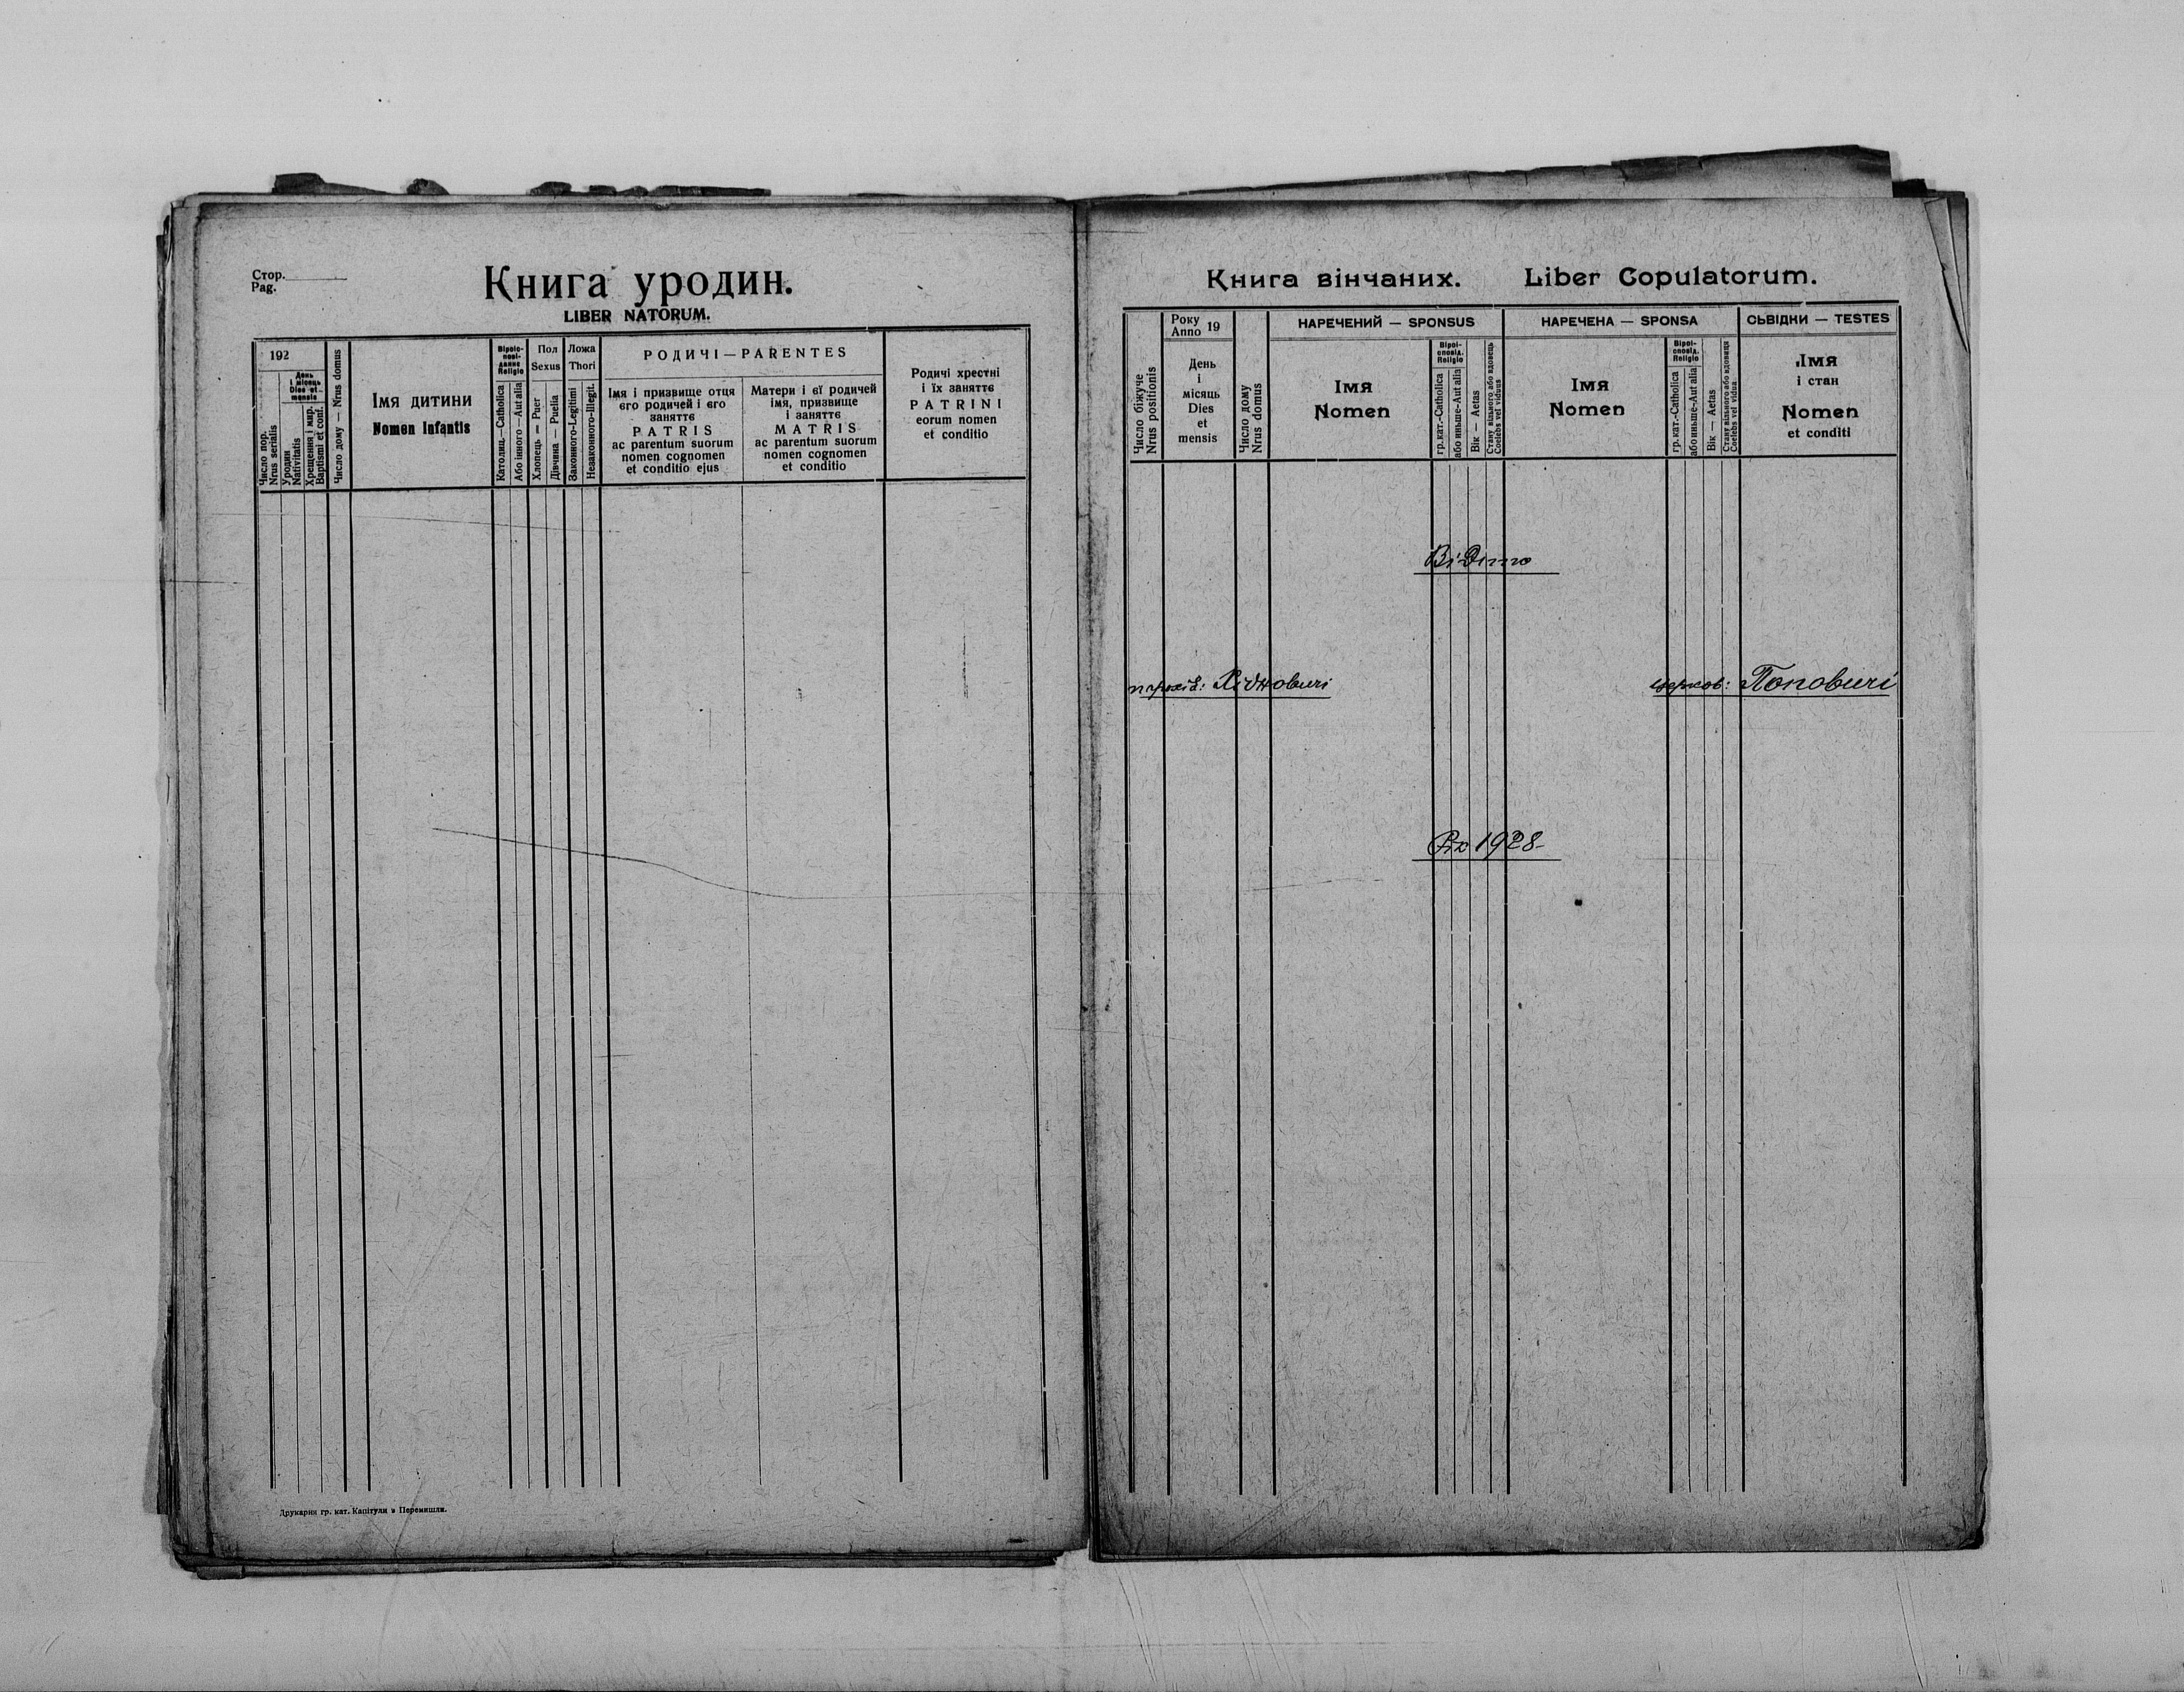 Стор.
Pag.
Книга уродин.
LIBER NATORUM.
192
Число пор.
Nrus serialis
День
і місяць
Dies et
mensis
Уродин
Nativitatis
Хрещення і мир.
Baptismi et conf.
Число дому — Nrus domus
Імя дитини
Nomen Infantis
Віроіс-
пові-
данне
Religio
Католиц.—Catholica
Або інного—Aut alia
Пол
Sexus
Хлопець — Puer
Дівчина — Puella
Ложа
Thori
Законного-Legitimi
Незаконного-Illegit.
РОДИЧІ—PARENTES
Імя і призвище отця
єго родичей і єго
заняттє
PATRIS
ac parentum suorum
nomen cognomen
et conditio ejus
Матери і єї родичей
імя, призвище
і заняттє
MATRIS
ac parentum suorum
nomen cognomen
et conditio
Родичі хрестні
і їх заняттє
PATRINI
eorum nomen
et conditio
Друкарня гр. кат. Капітули в Перемишли.
Книга вінчаних. Liber Copulatorum.
Число біжуче
Nrus positionis
Року
Anno 19
День
і
місяць
Dies
et
mensis
Число дому
Nrus domus
НАРЕЧЕНИЙ — SPONSUS
Імя
Nomen
Віроі-
сповід.
Religio
гр. кат.-Catholica
або иньше-Aut alia
Вік — Aetas
Стану вільного або вдовець
Coelebs vel viduus
НАРЕЧЕНА — SPONSA
Імя
Nomen
Віроі-
сповід.
Religio
гр. кат.-Catholica
або иньше-Aut alia
Вік — Aetas
Стану вільного або вдовиця
Coelebs vel vidua
СЬВІДКИ — TESTES
Імя
і стан
Nomen
et conditi
Вінчано
парохія: Хідновичі церков: Поповичі
Рік 1928